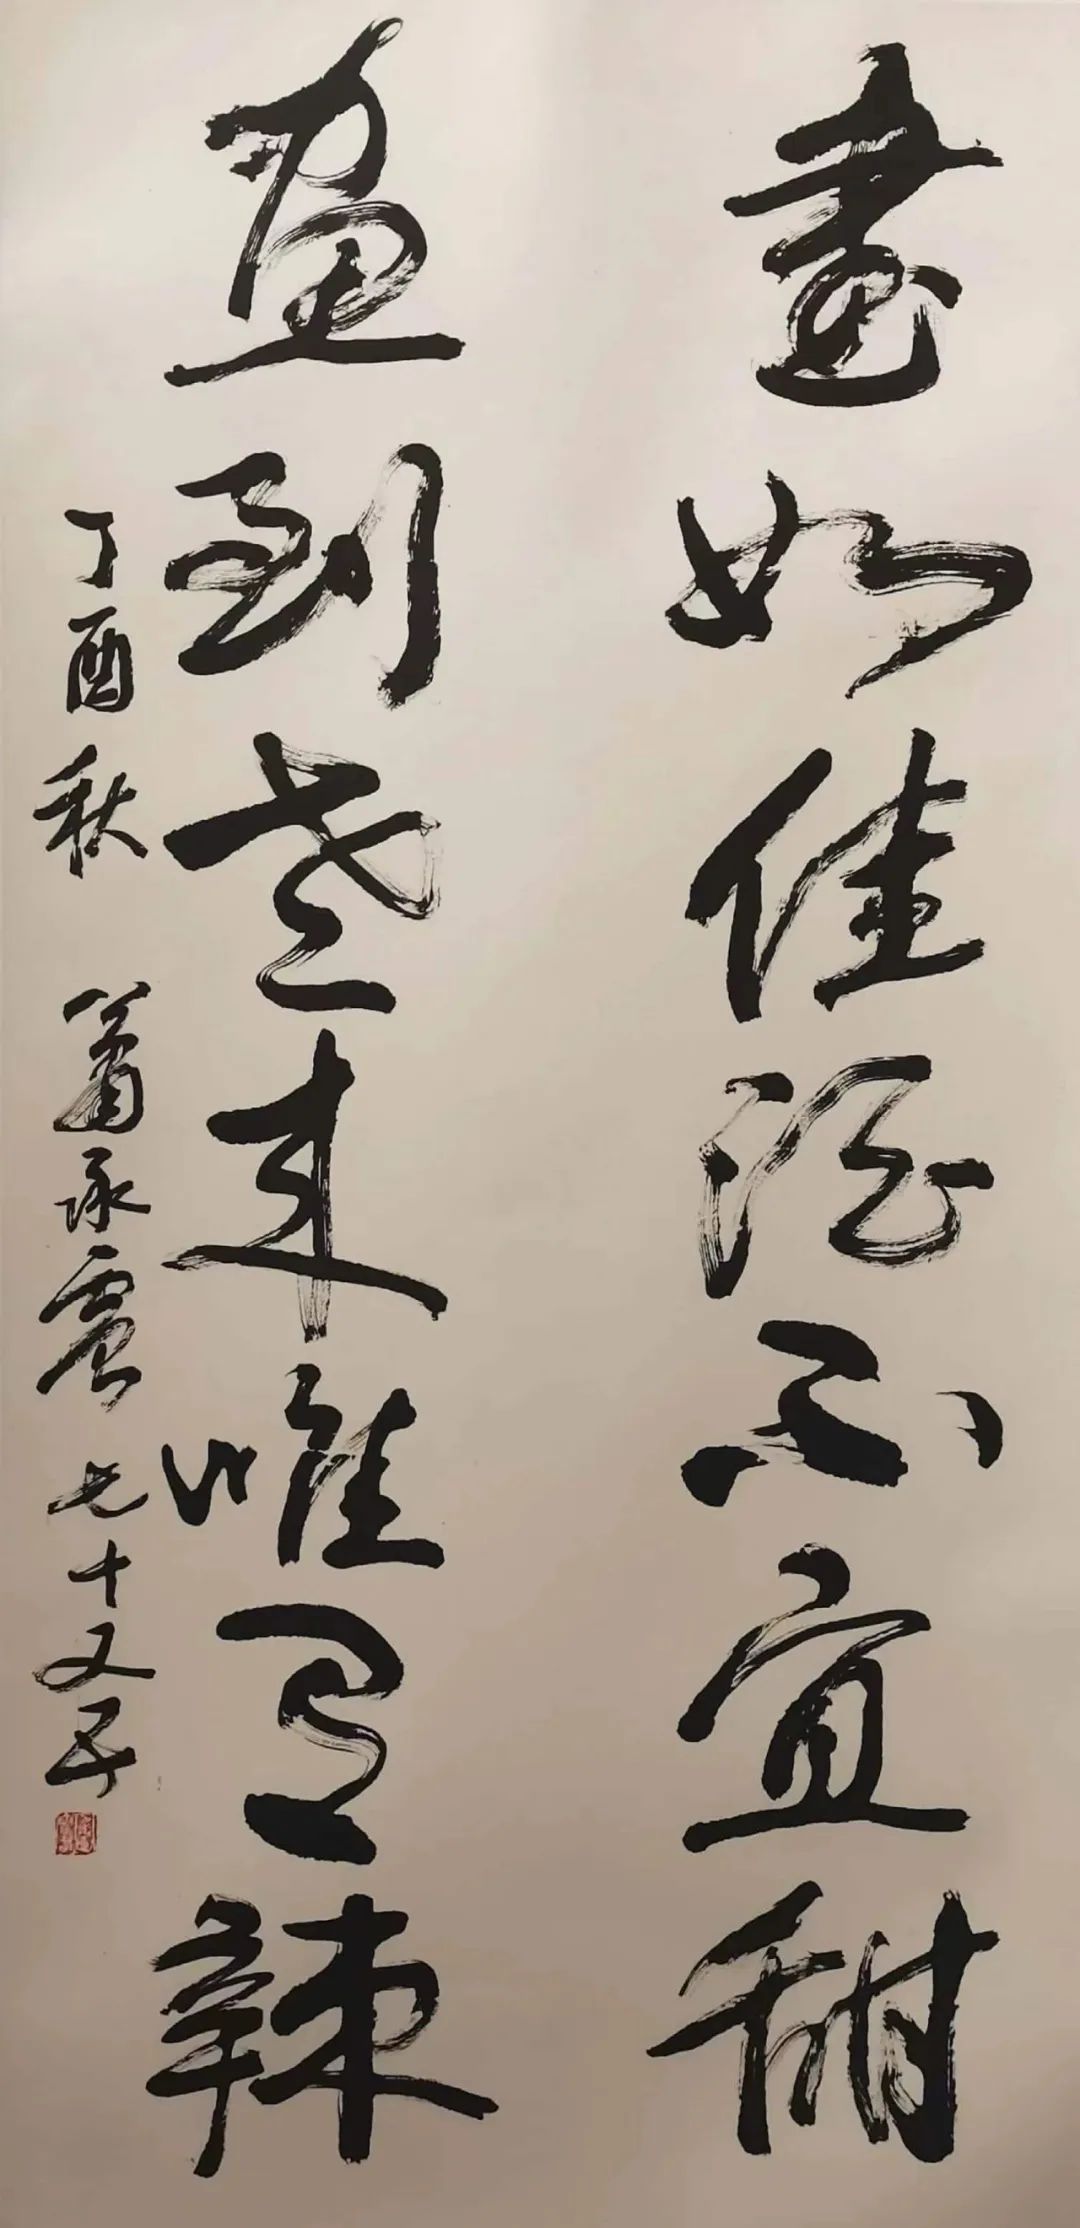 書如佳酒不宜甜
畫到老来惟有辣
丁酉秋 蕭承震 七十又五